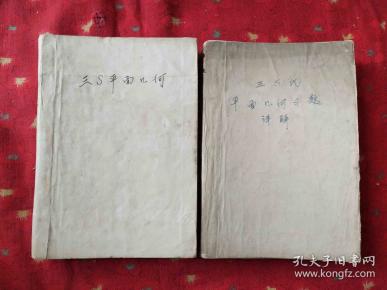 三S平面几何
三S氏
平面几何学题
详解
孔夫子旧书网
www.kongfz.com